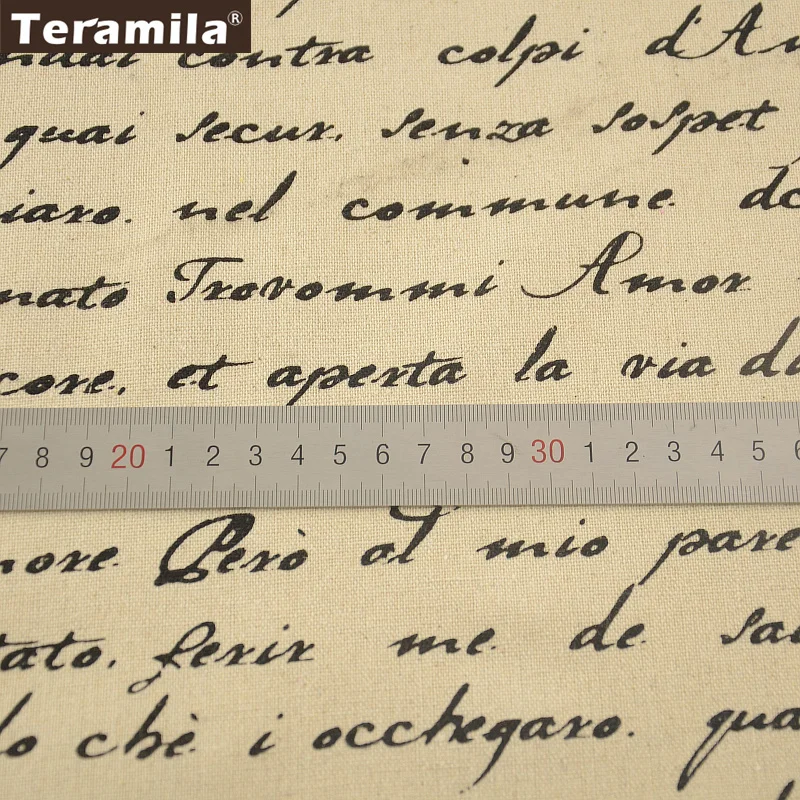 Teramila®
contra colpi d'A
quai secur. senza sospet
iaro. nel commune. do
nato Trovommi Amor
core. et aperta la via da
7 8 9 20 1 2 3 4 5 6 7 8 9 30 1 2 3 4 5 6
nore. Però al mio pare
tato. ferir me. de. sa
lo chè i occhegaro. qua